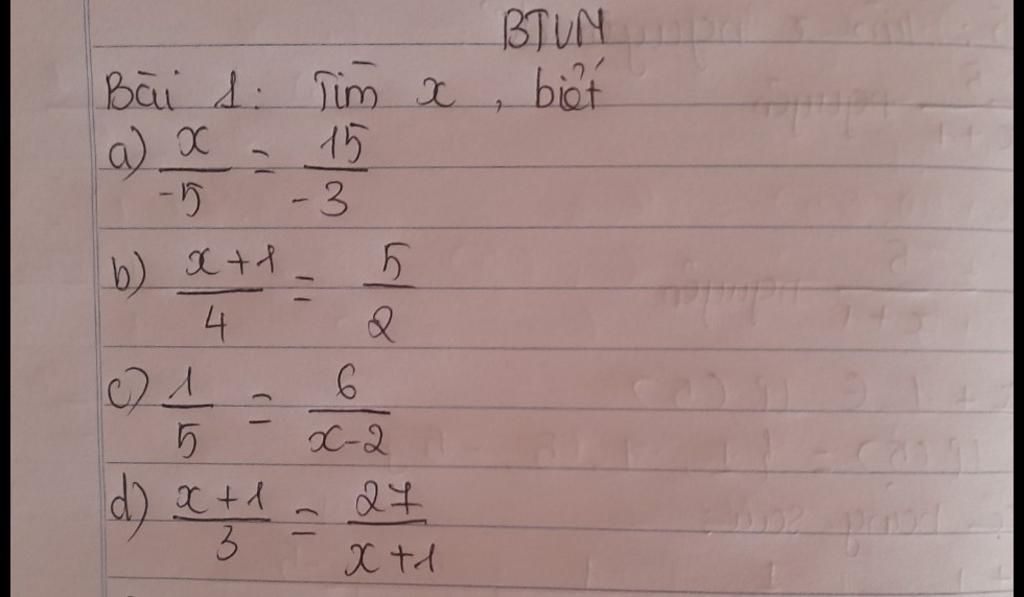 BTVN
Bài 1: Tìm x, biết
a) x/-5 = 15/-3
b) x+1/4 = 5/2
c) 1/5 = 6/x-2
d) x+1/3 = 27/x+1